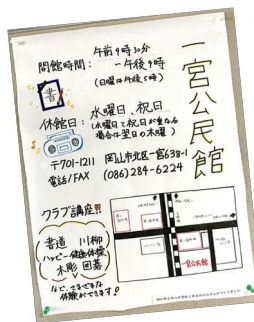 一宮公民館
開館時間：午前9時30分
～午後9時
（日曜は午後5時）
書
休館日：水曜日、祝日
（水曜日と祝日が重なる
場合は翌日の木曜）
〒701-1211 岡山市北区一宮638-1
電話/FAX (086)284-6224
クラブ講座!!
書道 川柳
ハッピー健康体操
木彫 囲碁
など、さまざまな
体験ができます!
一宮公民館